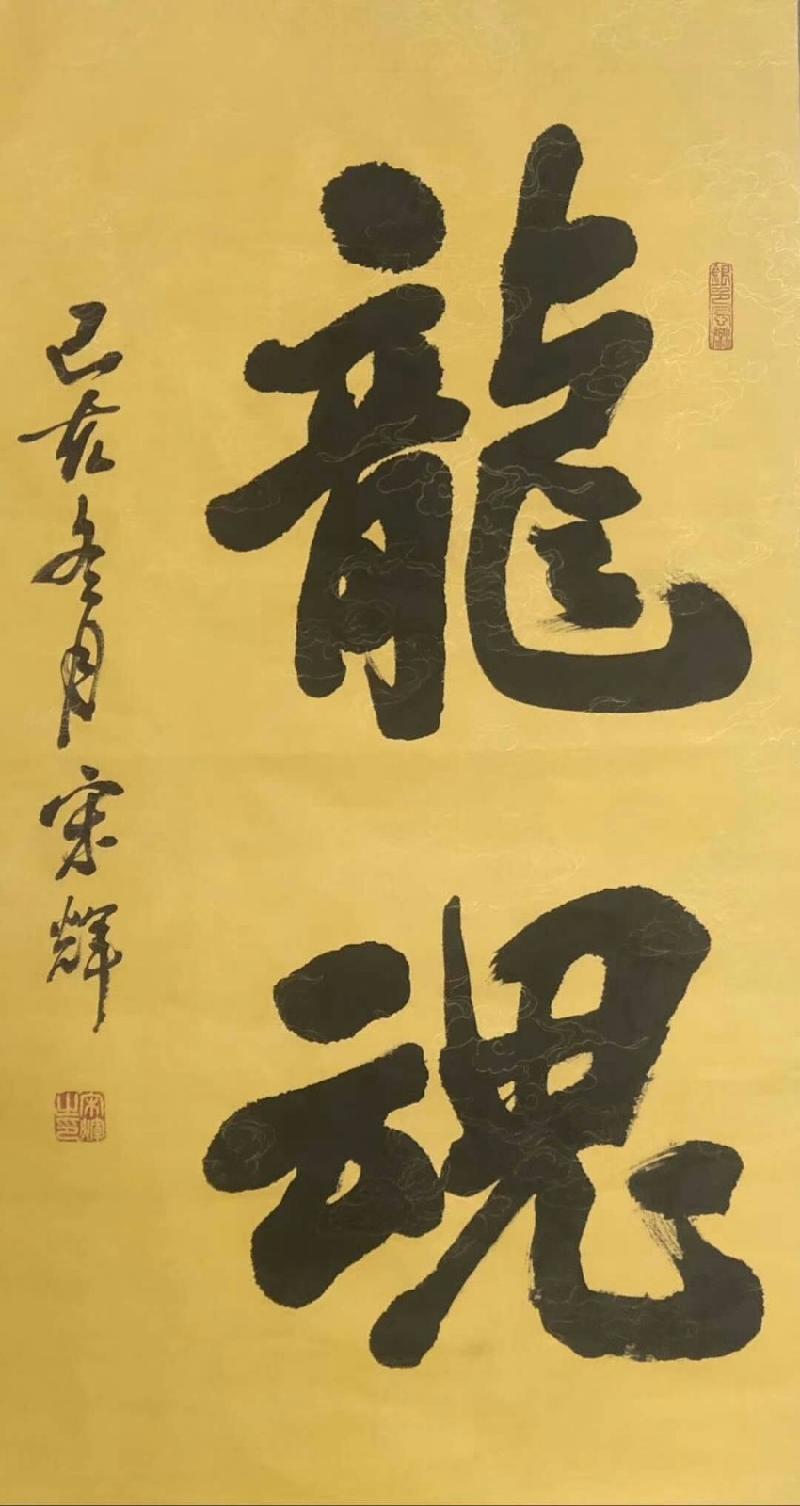 龍魂
己亥冬月宋輝
宋輝之印